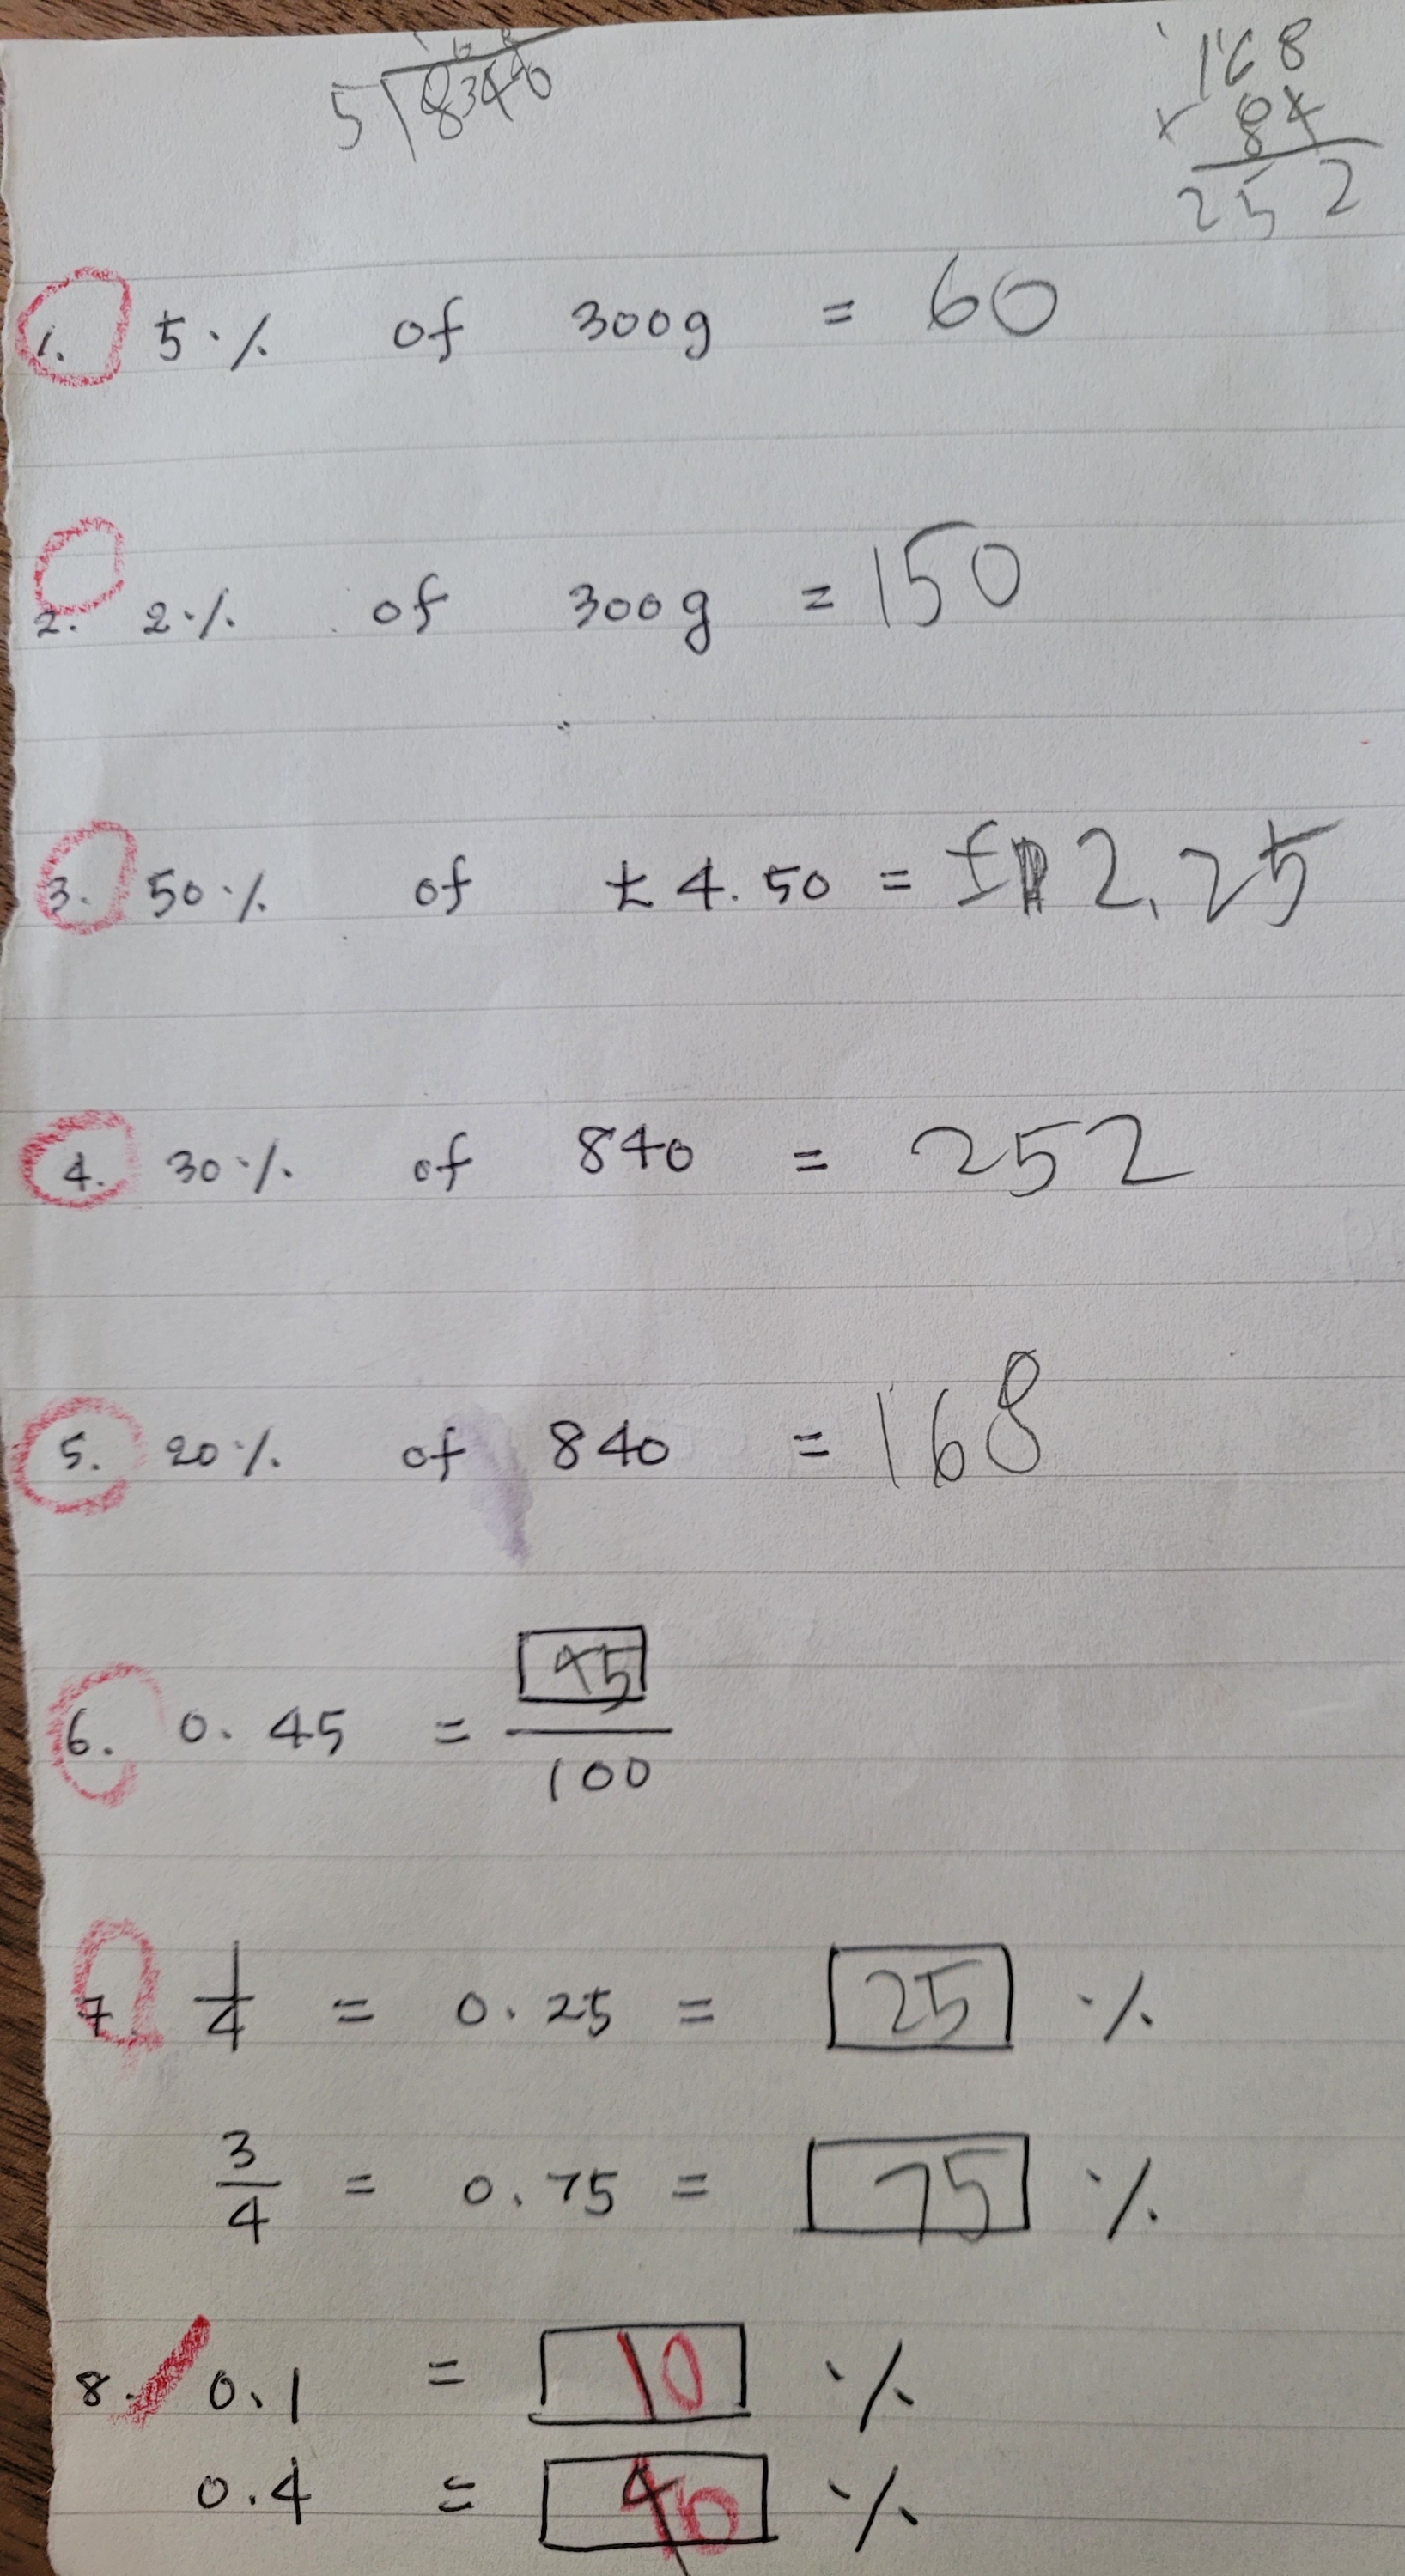 1 6 8
5 8 ³4 ⁴0
¹ 1 ¹6 8
+ 84
2 5 2
1. 5% of 300g = 60
2. 2% of 300g = 150
3. 50% of £4.50 = £2.25
4. 30% of 840 = 252
5. 20% of 840 = 168
6. 0.45 = 45/100
7. 1/4 = 0.25 = 25 %
3/4 = 0.75 = 75 %
8. 0.1 = 10 %
0.4 = 40 %